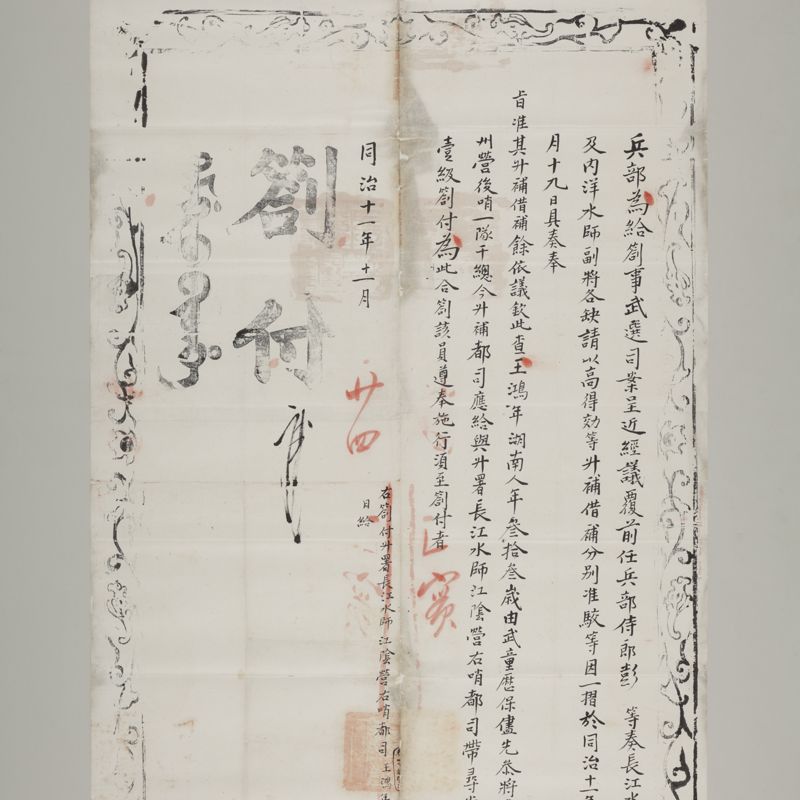 兵部為給劄事武選司案呈近經議覆前任兵部侍郎彭 等奏長江水
及內洋水師副將各缺請以高得効等升補借補分別准駁等因一摺於同治十一年
月十九日具奏奉
旨准其升補借補餘依議欽此查王鴻年湖南人年叁拾叁歲由武童歷保儘先叅將
州營後哨一隊千總今升補都司應給與升署長江水師江陰營右哨都司帶尋常
壹級劄付為此合劄該員遵奉施行須至劄付者
右劄付升署長江水師江陰營右哨都司王鴻年
同治十一年十一月
廿四
日給
劄付